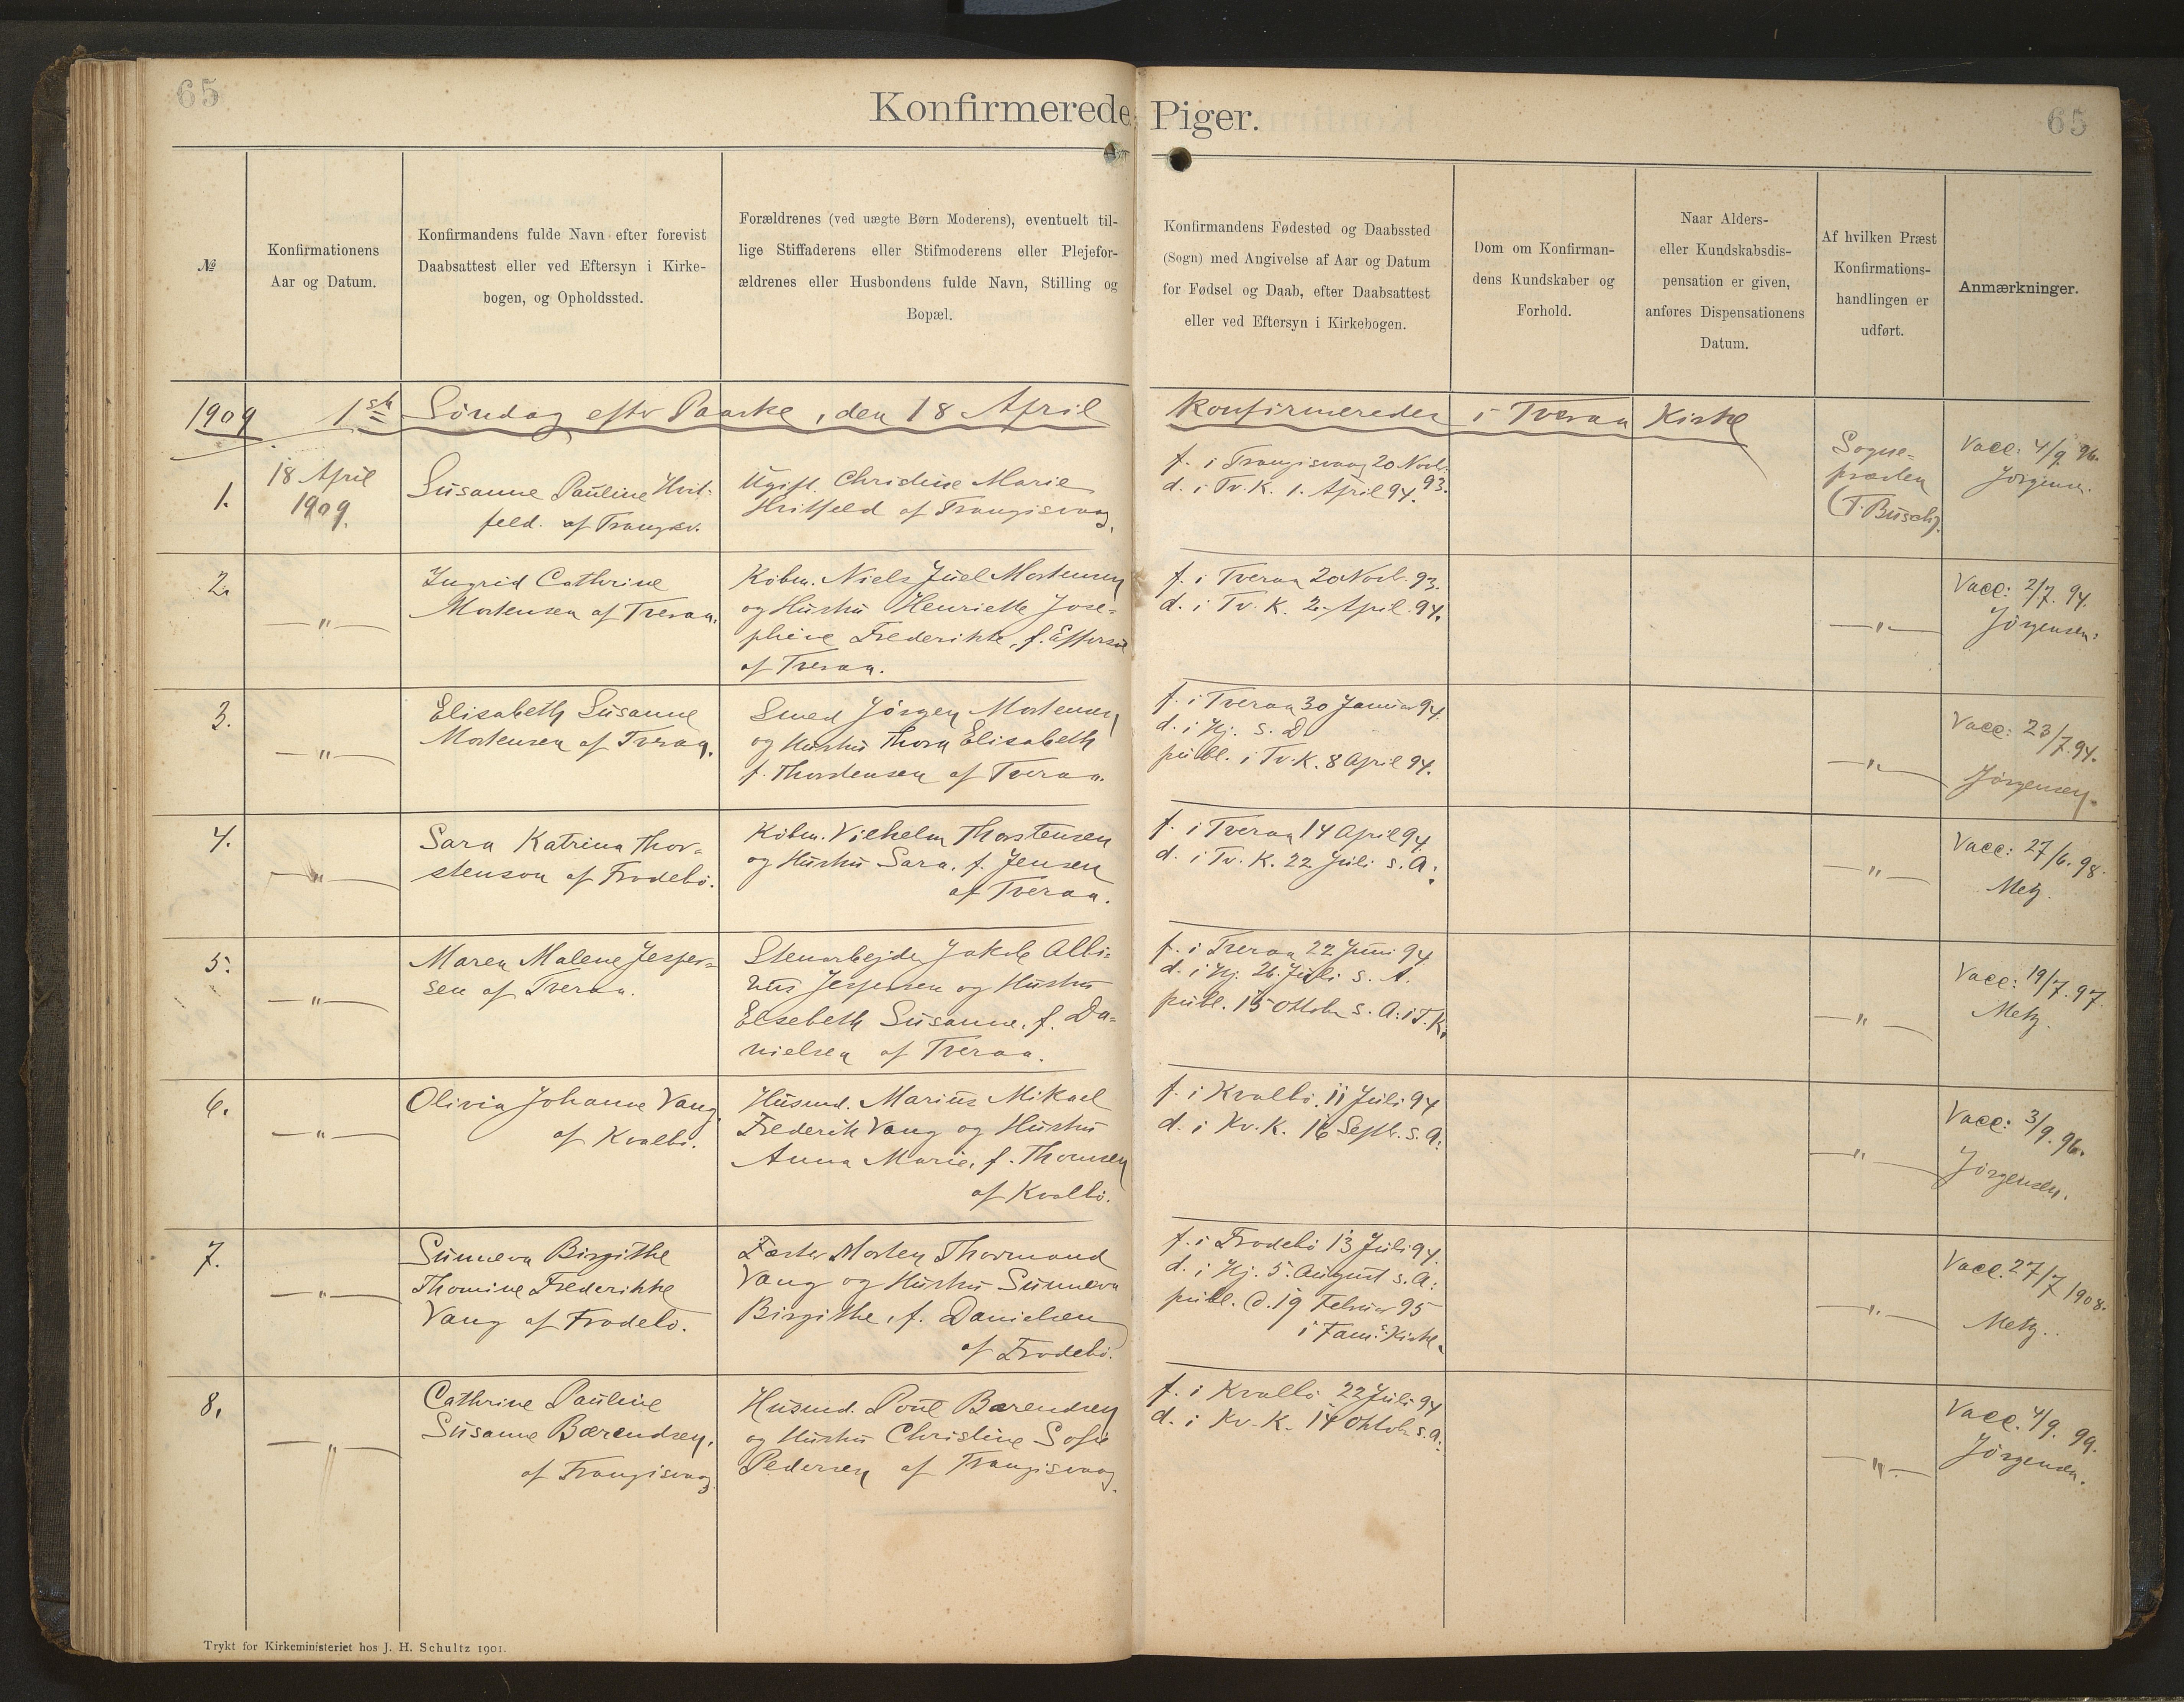 65
65
Konfirmerede Piger.
№
Konfirmationens
Aar og Datum.
Konfirmandens fulde Navn efter forevist
Daabsattest eller ved Eftersyn i Kirke-
bogen, og Opholdssted.
Forældrenes (ved uægte Børn Moderens), eventuelt til-
lige Stiffaderens eller Stifmoderens eller Plejefor-
ældrenes eller Husbondens fulde Navn, Stilling og
Bopæl.
Konfirmandens Fødested og Daabssted
(Sogn) med Angivelse af Aar og Datum
for Fødsel og Daab, efter Daabsattest
eller ved Eftersyn i Kirkebogen.
Dom om Konfirman-
dens Kundskaber og
Forhold.
Naar Alders-
eller Kundskabsdis-
pensation er given,
anføres Dispensationens
Datum.
Af hvilken Præst
Konfirmations-
handlingen er
udført.
Anmærkninger.
1909 1ste Søndag efter Paaske, den 18 April Konfirmereder i Tveraa Kirke
1.
18 April
1909.
Susanne Pauline Hvit-
feld. af Trangsv.
Ugift Christine Marie
Hvitfeld af Trangisvaag.
f. i Trangisvaag 20 Novb.
93.
d. i Tv. K. 1. April 94.
Sogne-
præsten
(T. Busch).
Vacc. 4/9 96.
Jørgensen.
2.
—"—
Ingrid Cathrine
Mortensen af Tveraa.
Købm. Niels Juel Mortensen
og Hustru Henriette Jose-
phine Frederikke, f. Effersøe
af Tveraa.
f. i Tveraa 20 Novb. 93.
d. i Tv. K. 2. April 94.
—"—
Vacc: 2/7. 94.
Jørgensen.
3.
—"—
Elisabeth Susanne
Mortensen af Tveraa.
Smed Jørgen Mortensen
og Hustru Thora Elisabeth
f. Thorstensen af Tveraa.
f. i Tveraa 30 Januar 94.
d. i Hj. S. D.
publ. i Tv. K. 8 April 94.
—"—
Vacc: 23/7. 94.
Jørgensen.
4.
—"—
Sara Katrina Thor-
stenson af Frodebö.
Købm. Vilhelm Thorstensen
og Hustru Sara, f. Jensen
af Tveraa.
f. i Tveraa 14 April 94.
d. i Tv. K. 22 Juli s. A.
—"—
Vacc: 27/6. 98.
Metz.
5.
—"—
Maren Malene Jesper-
sen af Tveraa.
Stenarbejder Jakob Albi-
nus Jespersen og Hustru
Elsebeth Susanne, f. Da-
nielsen af Tveraa.
f. i Tveraa 22 Juni 94.
d. i Hj. 26. Juli s. A.
publ. 15 Oktobr. s. A. i T. K.
—"—
Vacc: 19/7. 97.
Metz.
6.
—"—
Olivia Johanne Vang
af Kvalbö.
Husmd. Marius Mikael
Frederik Vang og Hustru
Anna Marie, f. Thomsen
af Kvalbö.
f. i Kvalbö. 11 Juli 94
d. i Kv. K. 16 Septb. s. A.
—"—
Vacc: 3/9. 96.
Jørgensen.
7.
—"—
Sunneva Birgithe
Thomine Frederikke
Vang af Frodebö.
Fæster Morten Thormond
Vang og Hustru Sunneva
Birgithe, f. Danielsen
af Frodebö.
f. i Frodebö 13 Juli 94.
d. i Hj. 5. August s. A.
publ. d. 19 Februar 95
i Fam. Kirke.
—"—
Vacc. 27/7 1908.
Metz.
8.
—"—
Cathrine Pauline
Susanne Bærendsen,
af Trangisvaag
Husmd. Poul Bærendsen
og Hustru Christine Sofie
Pedersen af Trangisvaag.
f. i Kvalbö 22 Juli 94
d. i Kv. K. 14 Oktob. s. A.
—"—
Vacc. 4/9. 99.
Jørgensen.
Trykt for Kirkeministeriet hos J. H. Schultz 1901.